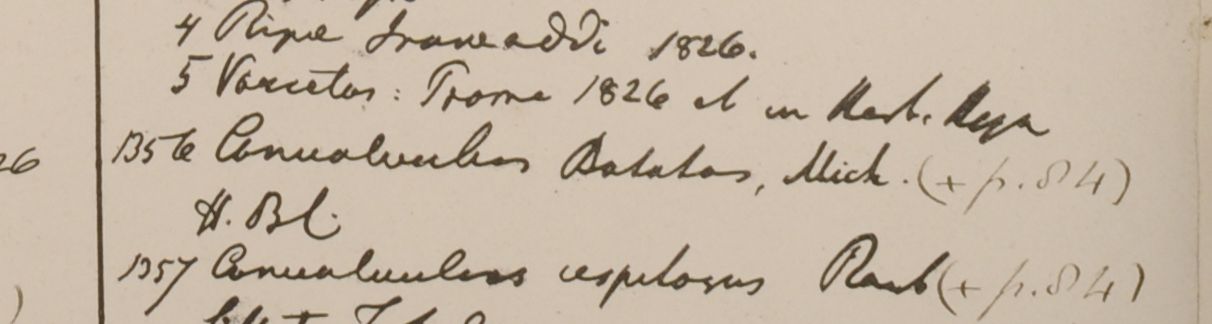 4 Ripae Irawaddi 1826.
5 Varietas: Prome 1826 et in Herb. Heyn
26
1356 Convolvulus Batatas, Mich. (+ p. 84)
H. Bl.
1357 Convolvulus cespitosus Roxb (+ p. 84)
)